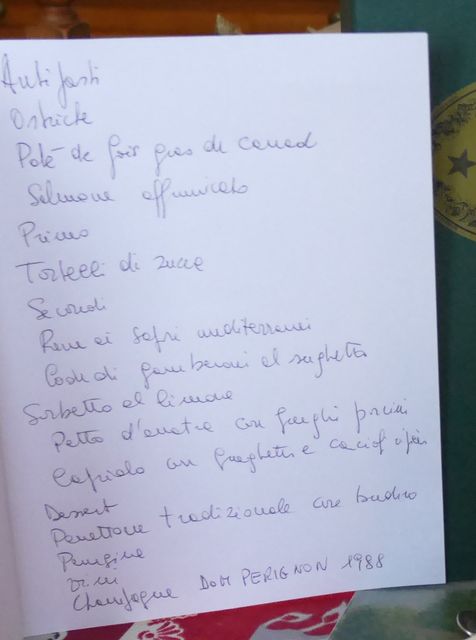 Antipasti
Ostriche
Patè de fois gras de canad
Salmone affumicato
Primo
Tortelli di zucca
Secondi
Rane ai sapri mediterranei
Code di gamberoni al sughetto
Sorbetto al limone
Petto d'anatra con funghi porcini
Capriolo con funghetti e carciofi
Dessert
Panettone tradizionale con
Vini
Champagne DOM PERIGNON 1988